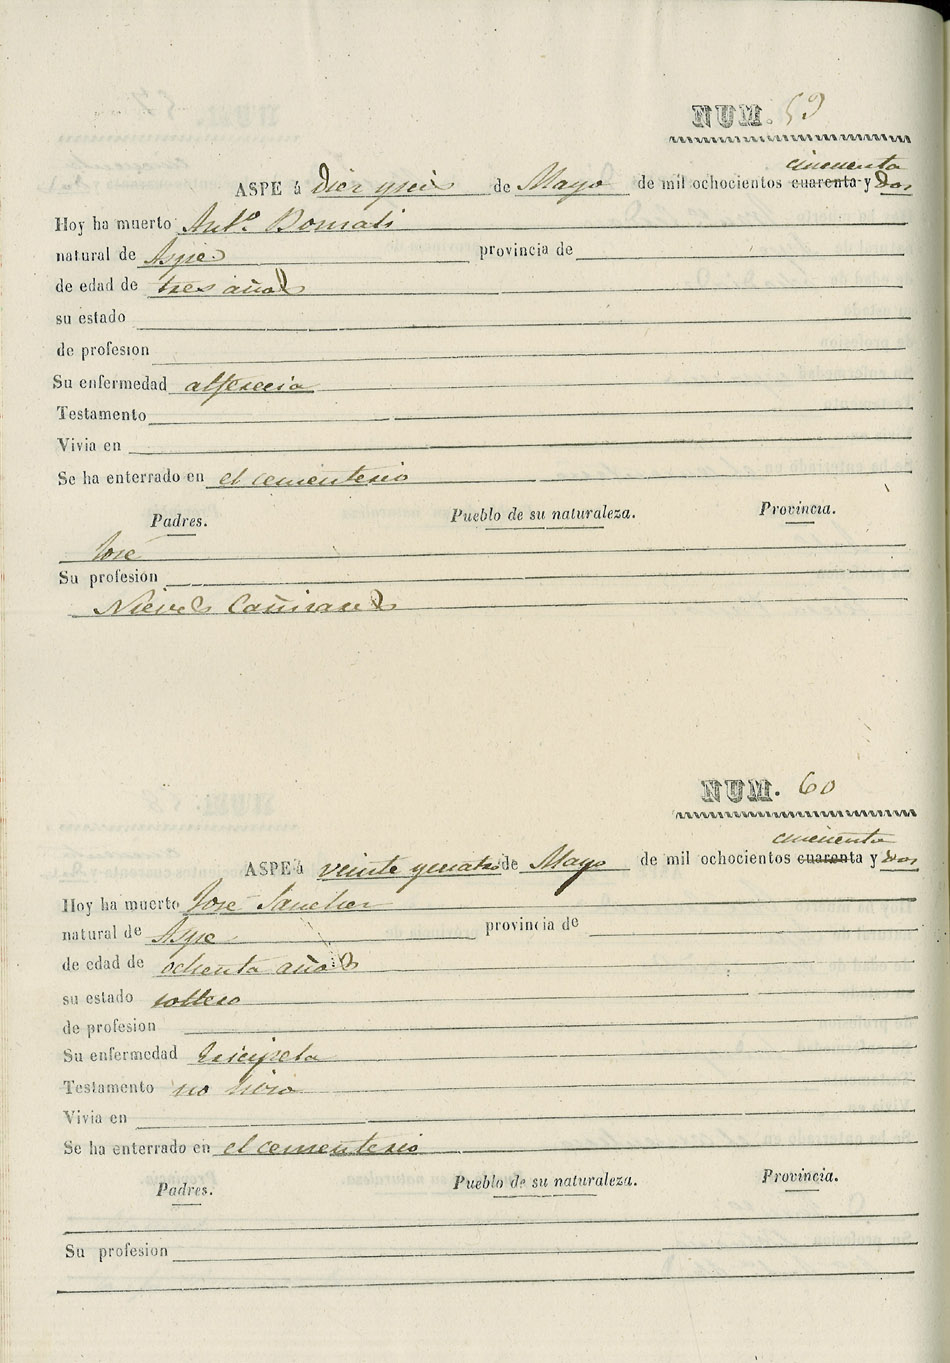 NUM. 59
cincuenta
ASPE á diez y seis de Mayo de mil ochocientos cuarenta y dos
Hoy ha muerto Antº. Bonmati
natural de Aspe provincia de
de edad de tres años
su estado
de profesion
Su enfermedad alferecia
Testamento
Vivia en
Se ha enterrado en el cementerio
Padres. Pueblo de su naturaleza. Provincia.
José
Su profesion
Nieves Cañizares
NUM. 60
cincuenta
ASPE á veinte y cuatro de Mayo de mil ochocientos cuarenta y dos
Hoy ha muerto José Sanchez
natural de Aspe provincia de
de edad de ochenta años
su estado soltero
de profesion
Su enfermedad Erisipela
Testamento no hizo
Vivia en
Se ha enterrado en el cementerio
Padres. Pueblo de su naturaleza. Provincia.
Su profesion